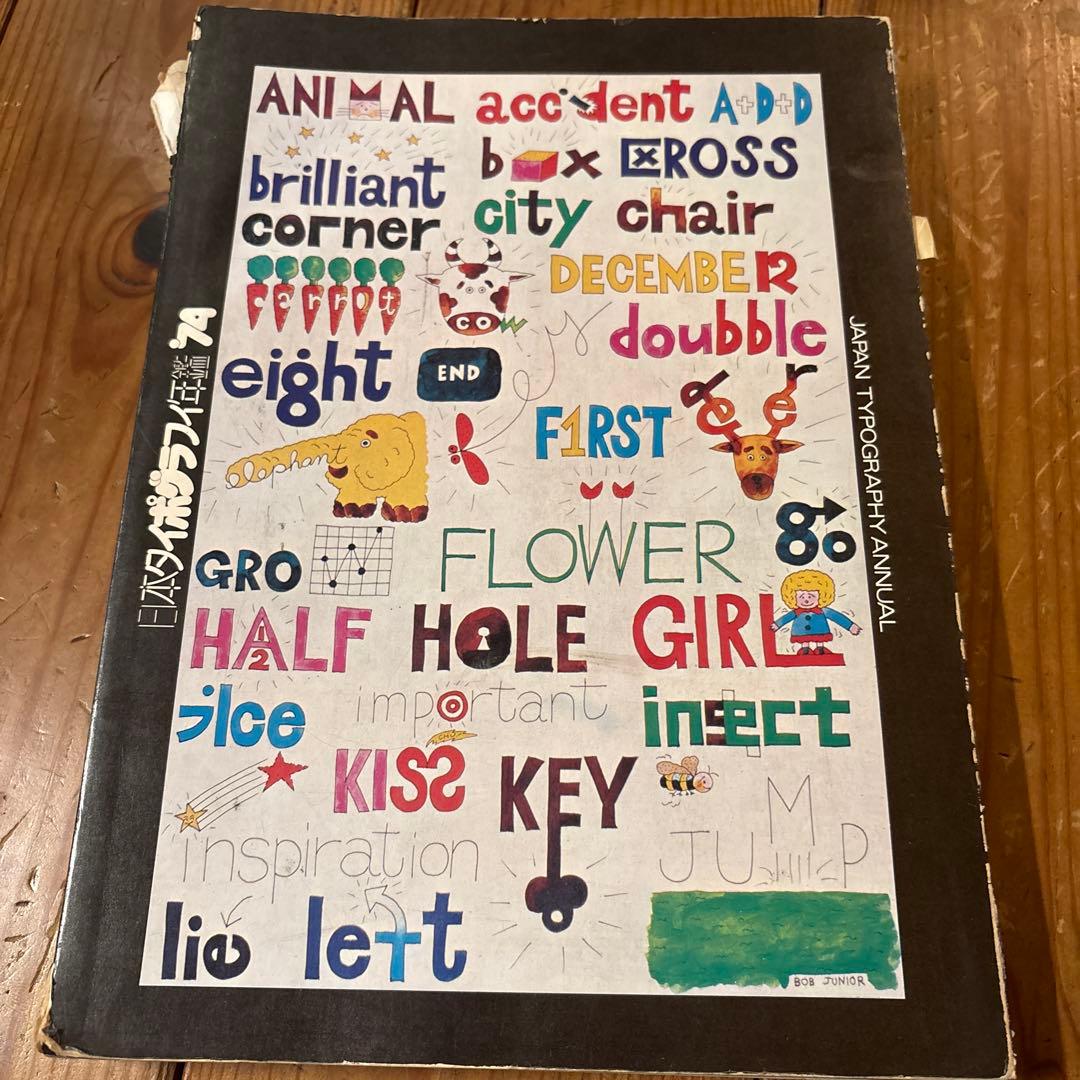 ANIMAL accident A+D+D
brilliant box CROSS
corner city chair
carrot cow DECEMBER
doubble
eight END
elephant F1RST deer
GRO FLOWER go
HALF 1 2 HOLE GIRL
ice important insect
CHU
KISS KEY
inspiration JUMP
lie left
BOB JUNIOR
日本タイポグラフィ年鑑 '74
JAPAN TYPOGRAPHY ANNUAL